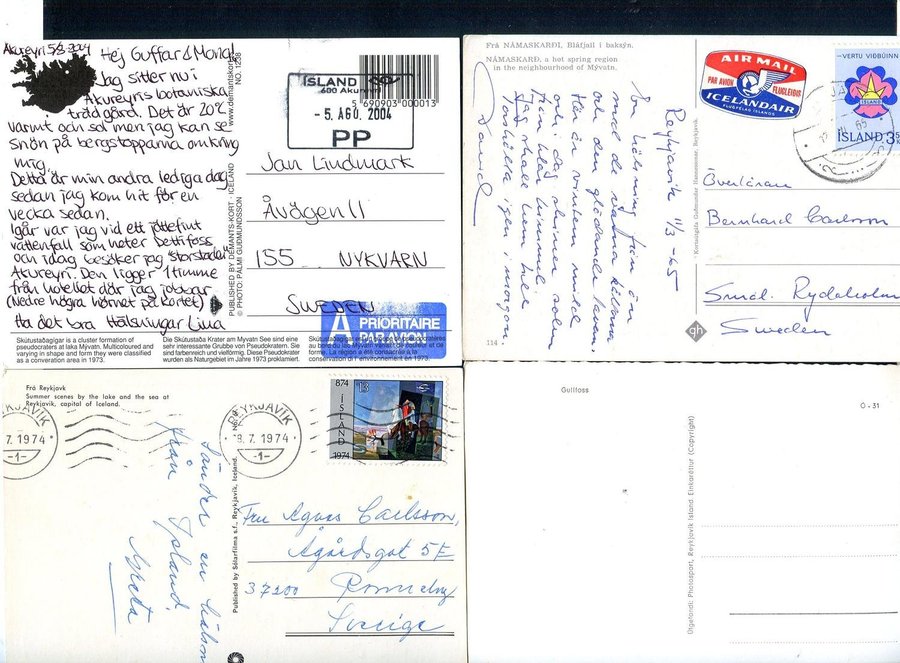 Akureyri 5/8-2004
Hej Guffar & Mona!
Jag sitter nu i
Akureyris botaniska
trädgård. Det är 20°C
varmt och sol men jag kan se
snön på bergstopparna omkring
mig.
Detta är min andra lediga dag
sedan jag kom hit för en
vecka sedan.
Igår var jag vid ett jättefint
vattenfall som heter Dettifoss
och idag besöker jag "storstaden"
Akureyri. Den ligger 1 timme
från hotellet där jag jobbar
(Nedre högra hörnet på kortet)
Ha det bra Hälsningar Lina
Skútustaðagígar is a cluster of formation of
pseudocraters at lake Mývatn. Multicoloured and
varying in shape and form they were classified
as a converation area in 1973.
Die Skútustaða Krater am Myvatn See sind eine
sehr interessante Grubbe von Pseudokratern. Sie
sind farbenreich und vielförmig. Diese Pseudokrater
wurden als Naturgebiet im Jahre 1973 proklamiert.
PUBLISHED BY DEMANTS-KORT · ICELAND
© PHOTO: PÁLMI GUÐMUNDSSON
www.demantskort
NO. 1238
5 690903 000013
ÍSLAND
600 Akureyri
- 5. ÁGÚ. 2004
PP
Jan Lindmark
Åvägen 11
155 NYKVARN
SWEDEN
A PRIORITAIRE
PAR AVION
Frá NÁMASKARÐI, Bláfjall í baksýn.
NÁMASKARÐ, a hot spring region
in the neighbourhood of Mývatn.
Reykjavik 11/3 -65
En hälsning från ön
med de varma källorna
och den glödande lavan.
Här är vintern mild
och i dag skiner solen
från blå himmel.
Jag skall hem till
igen i morgon
114
Kortaútgáfa Guðmundar Hannessonar, Reykjavík.
AIR MAIL
PAR AVION FLUGLEIÐIS
ICELANDAIR
FLUGFÉLAG ÍSLANDS
VERTU VIÐBÚINN
ÍSLAND
ÍSLAND 3,50
gh
Överläraren
Bernhard Carlsson
Smål. Rydaholm
Sweden
Frá Reykjavk
Summer scenes by the lake and the sea at
Reykjavík, capital of Iceland.
REYKJAVÍK
8.7.1974
-1-
REYKJAVÍK
8.7.1974
-1-
874
13
ÍSLAND
1974
Sänder en hälsn
från Island.
Greta
Published by Sólarfilma s.f., Reykjavík, Iceland.
Fru Agnes Carlsson,
Ågårdsgat 5E
37200 Ronneby
Sverige
Gullfoss
O - 31
Útgefandi: Photosport, Reykjavik Island Einkaréttur (Copyright)